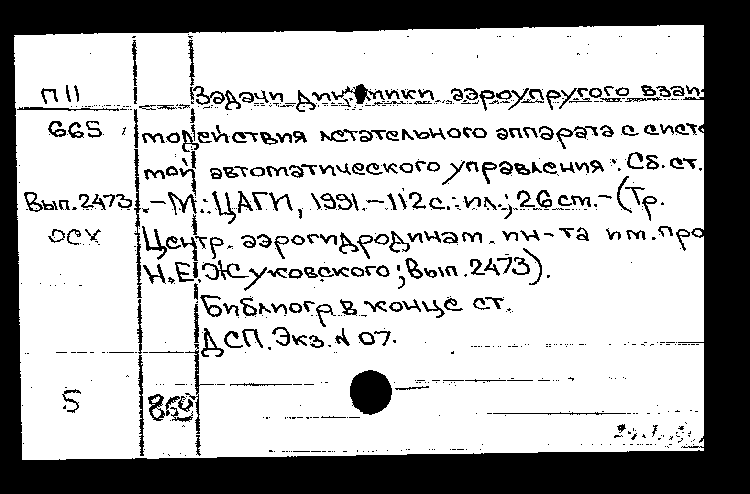 П11 Задачи динамики аэроупругого взаи-
665 модействия летательного аппарата с систе
мой автоматического управления : Сб. ст.
Вып.2473 .-М.:ЦАГИ, 1991.-112с.:ил.; 26см.-(Тр.
ОСХ Центр. аэрогидродинам. ин-та им. про
Н.Е.Жуковского; Вып.2473).
Библиогр. в конце ст.
ДСП. Экз. N 07.
5 869